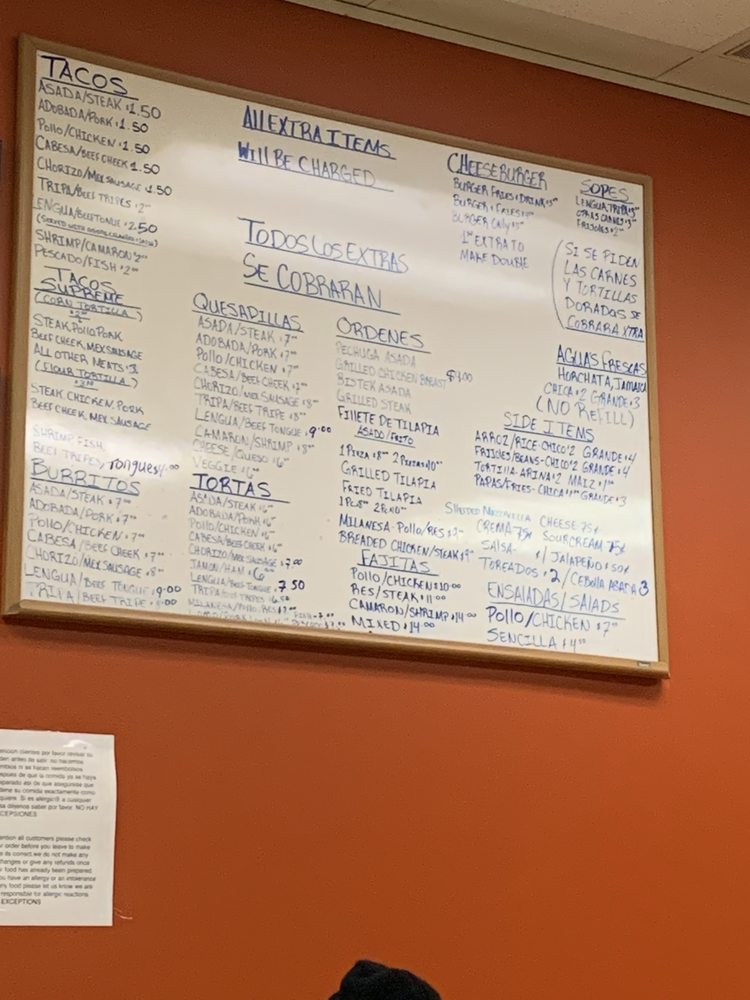 TACOS
ASADA/STEAK $1.50
ADOBADA/PORK $1.50
Pollo/CHICKEN $1.50
CABESA/BEEF CHEEK $1.50
CHORIZO/MEX SAUSAGE $1.50
TRIPA/BEEF TRIPES $2
LENGUA/BEEF TONGUE $2.50
SHRIMP/CAMARON
PESCADO/FISH $2
TACOS
SUPREME
(CORN TORTILLA)
STEAK, Pollo, PORK
BEEF CHEEK, MEX SAUSAGE
ALL OTHER MEATS $3
(FLOUR TORTILLA)
STEAK, CHICKEN, PORK
BEEF CHEEK, MEX SAUSAGE
SHRIMP, FISH,
BEEF TRIPES/Tongue
BURRITOS
ASADA/STEAK $7
ADOBADA/PORK $7
Pollo/CHICKEN $7
CABESA/BEEF CHEEK $7
CHORIZO/MEX SAUSAGE $8
LENGUA/BEEF TONGUE $9.00
TRIPA/BEEF TRIPE
All EXTRA ITEMS
Will BE CHARGED
TODOS LOS EXTRAS
SE COBRARAN
QUESADILLAS
ASADA/STEAK $7
ADOBADA/PORK $7
Pollo/CHICKEN $7
CABESA/BEEF CHEEK
CHORIZO/MEX SAUSAGE $8
TRIPA/BEEF TRIPE $8
LENGUA/BEEF TONGUE $9.00
CAMARON/SHRIMP $8
CHEESE/QUESO $6
VEGGIE $6
TORTAS
ASADA/STEAK $6
ADOBADA/PORK $6
Pollo/CHICKEN $6
CABESA/BEEF CHEEK $6
CHORIZO/MEX SAUSAGE $7.00
JAMON/HAM $6
LENGUA/BEEF TONGUE $7.50
TRIPA/BEEF TRIPES
MILANESA/Pollo/RES
ORDENES
PECHUGA ASADA
GRILLED CHICKEN BREAST $9.00
BISTEK ASADA
GRILLED STEAK
FILLETE DE TILAPIA
ASADO/FRITO
1 PIEZA $8 2 PIEZAS $10
GRILLED TILAPIA
FRIED TILAPIA
1 PC $8 2 PC $10
MILANESA-Pollo/RES $9
BREADED CHICKEN/STEAK $9
FAJITAS
Pollo/CHICKEN $10.00
RES/STEAK $11.00
CAMARON/SHRIMP $14.00
MIXED $14.00
CHEESEBURGER
BURGER FRIES & DRINK
BURGER & FRIES
BURGER ONLY
EXTRA TO
MAKE DOUBLE
SOPES
LENGUA, TRIPA
OTRAS CARNES $3
FRIJOLES $2
(SI SE PIDEN
LAS CARNES
Y TORTILLAS
DORADOS SE
COBRARA XTRA
AGUAS FRESCAS
HORCHATA, JAMAICA
CHICA $2 GRANDE $3
(NO REFILL)
SIDE ITEMS
ARROZ/RICE-CHICO $2 GRANDE $4
FRIJOLES/BEANS-CHICO $2 GRANDE $4
TORTILLA-ARINA $2 MAIZ
PAPAS/FRIES-CHICA GRANDE $3
CHEESE 75¢
CREMA 75¢ SOUR CREAM 75¢
SALSA- JALAPEÑO 50¢
TOREADOS $2/CEBOLLA ASADA 3
ENSALADAS/SALADS
Pollo/CHICKEN $7
SENCILLA $4
por favor revisar su
orden antes de salir. no hacemos
si su comida exactamente como
quiere. Si es alergic@ a cualquier
dejenos saber por favor. NO HAY
EXCEPSIONES
all customers please check
order before you leave to make
its correct, we do not make any
changes or give any refunds once
food has already been prepared.
you have an allergy or an intolerance
food please let us know we are
responsible for allergic reactions.
EXCEPTIONS